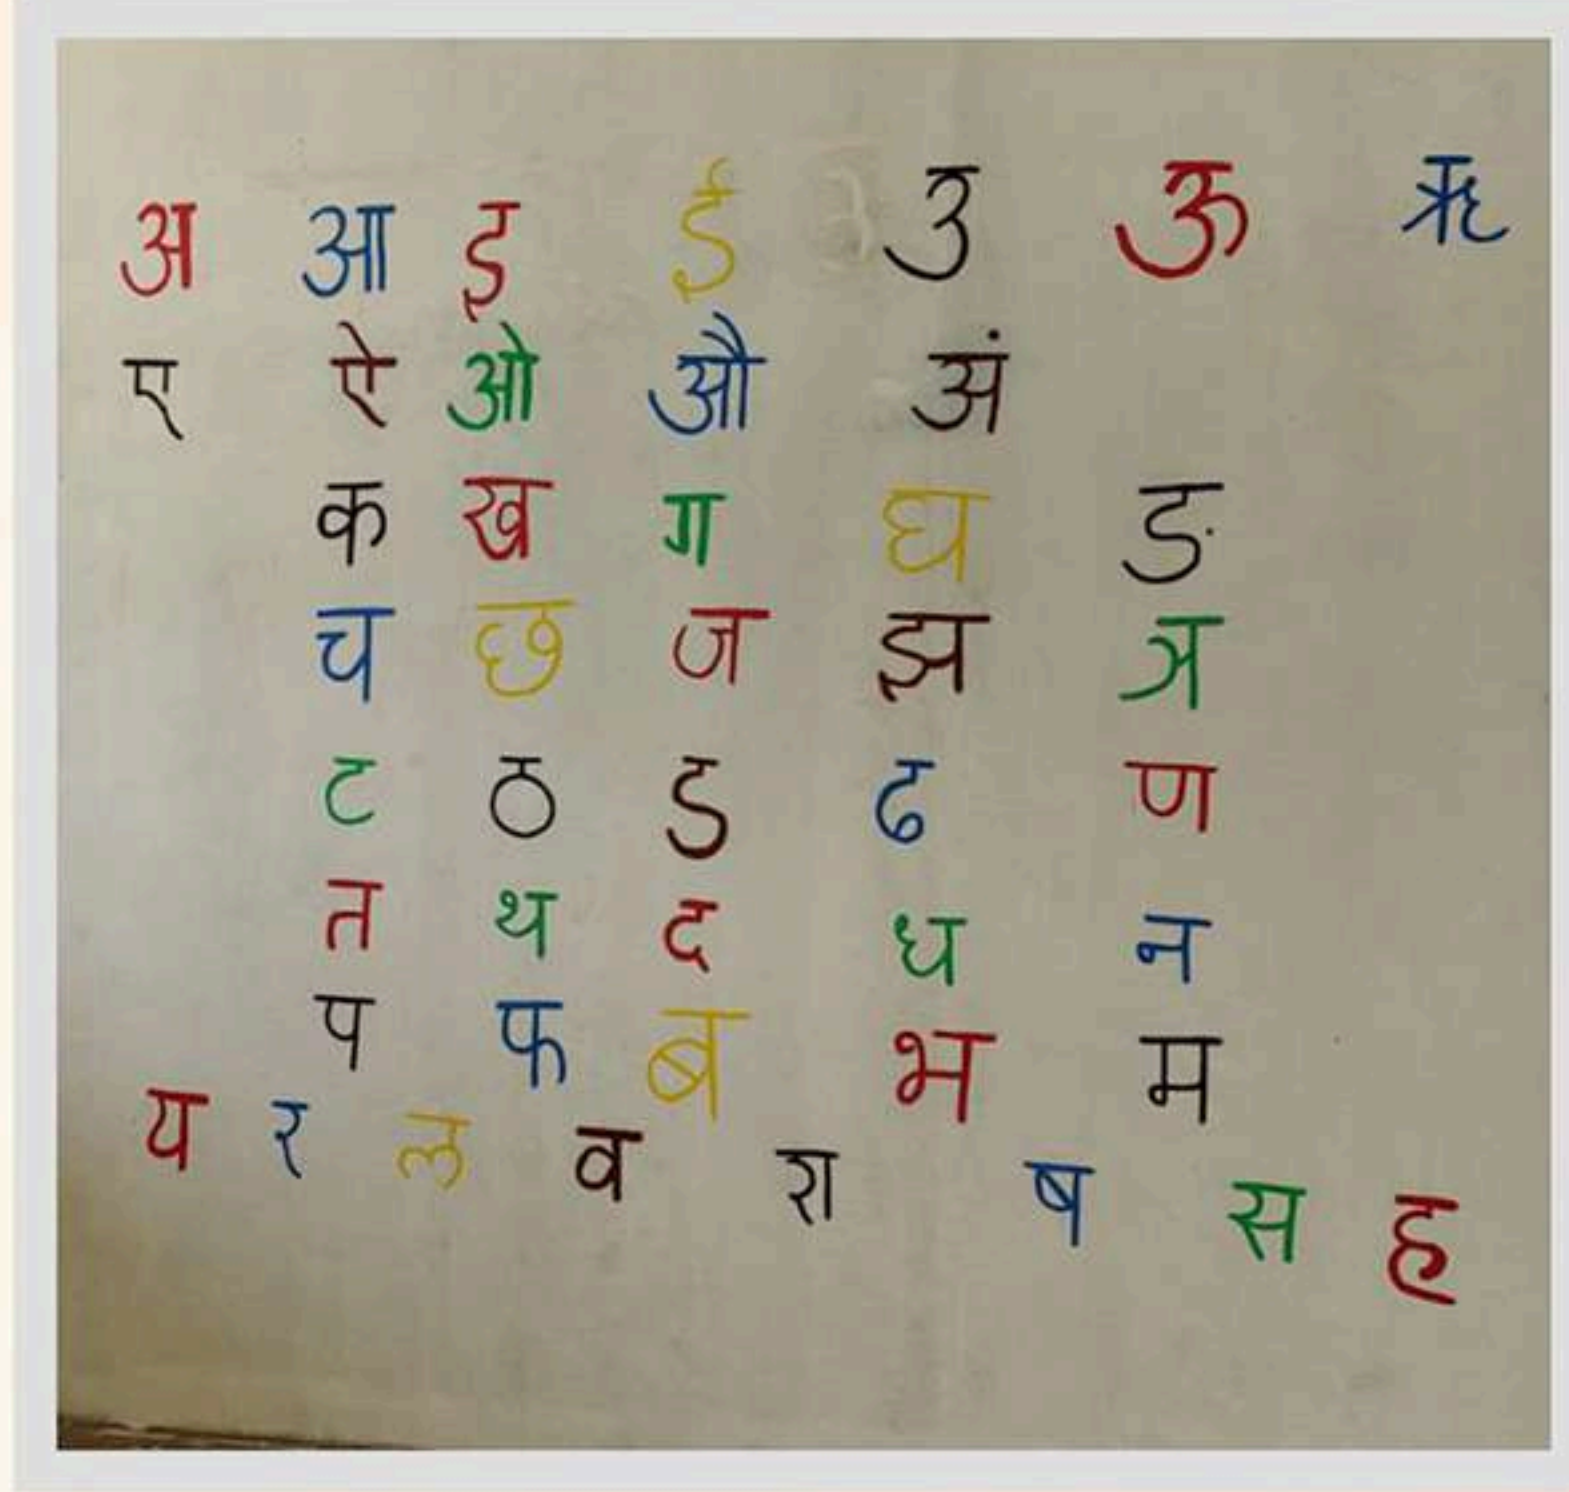 अ आ इ ई उ ऊ ऋ
ए ऐ ओ औ अं
क ख ग घ ङ
च छ ज झ ञ
ट ठ ड ढ ण
त थ द ध न
प फ ब भ म
य र ल व श ष स ह